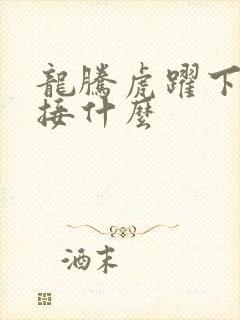 龍騰虎躍下
接什麼
酒末